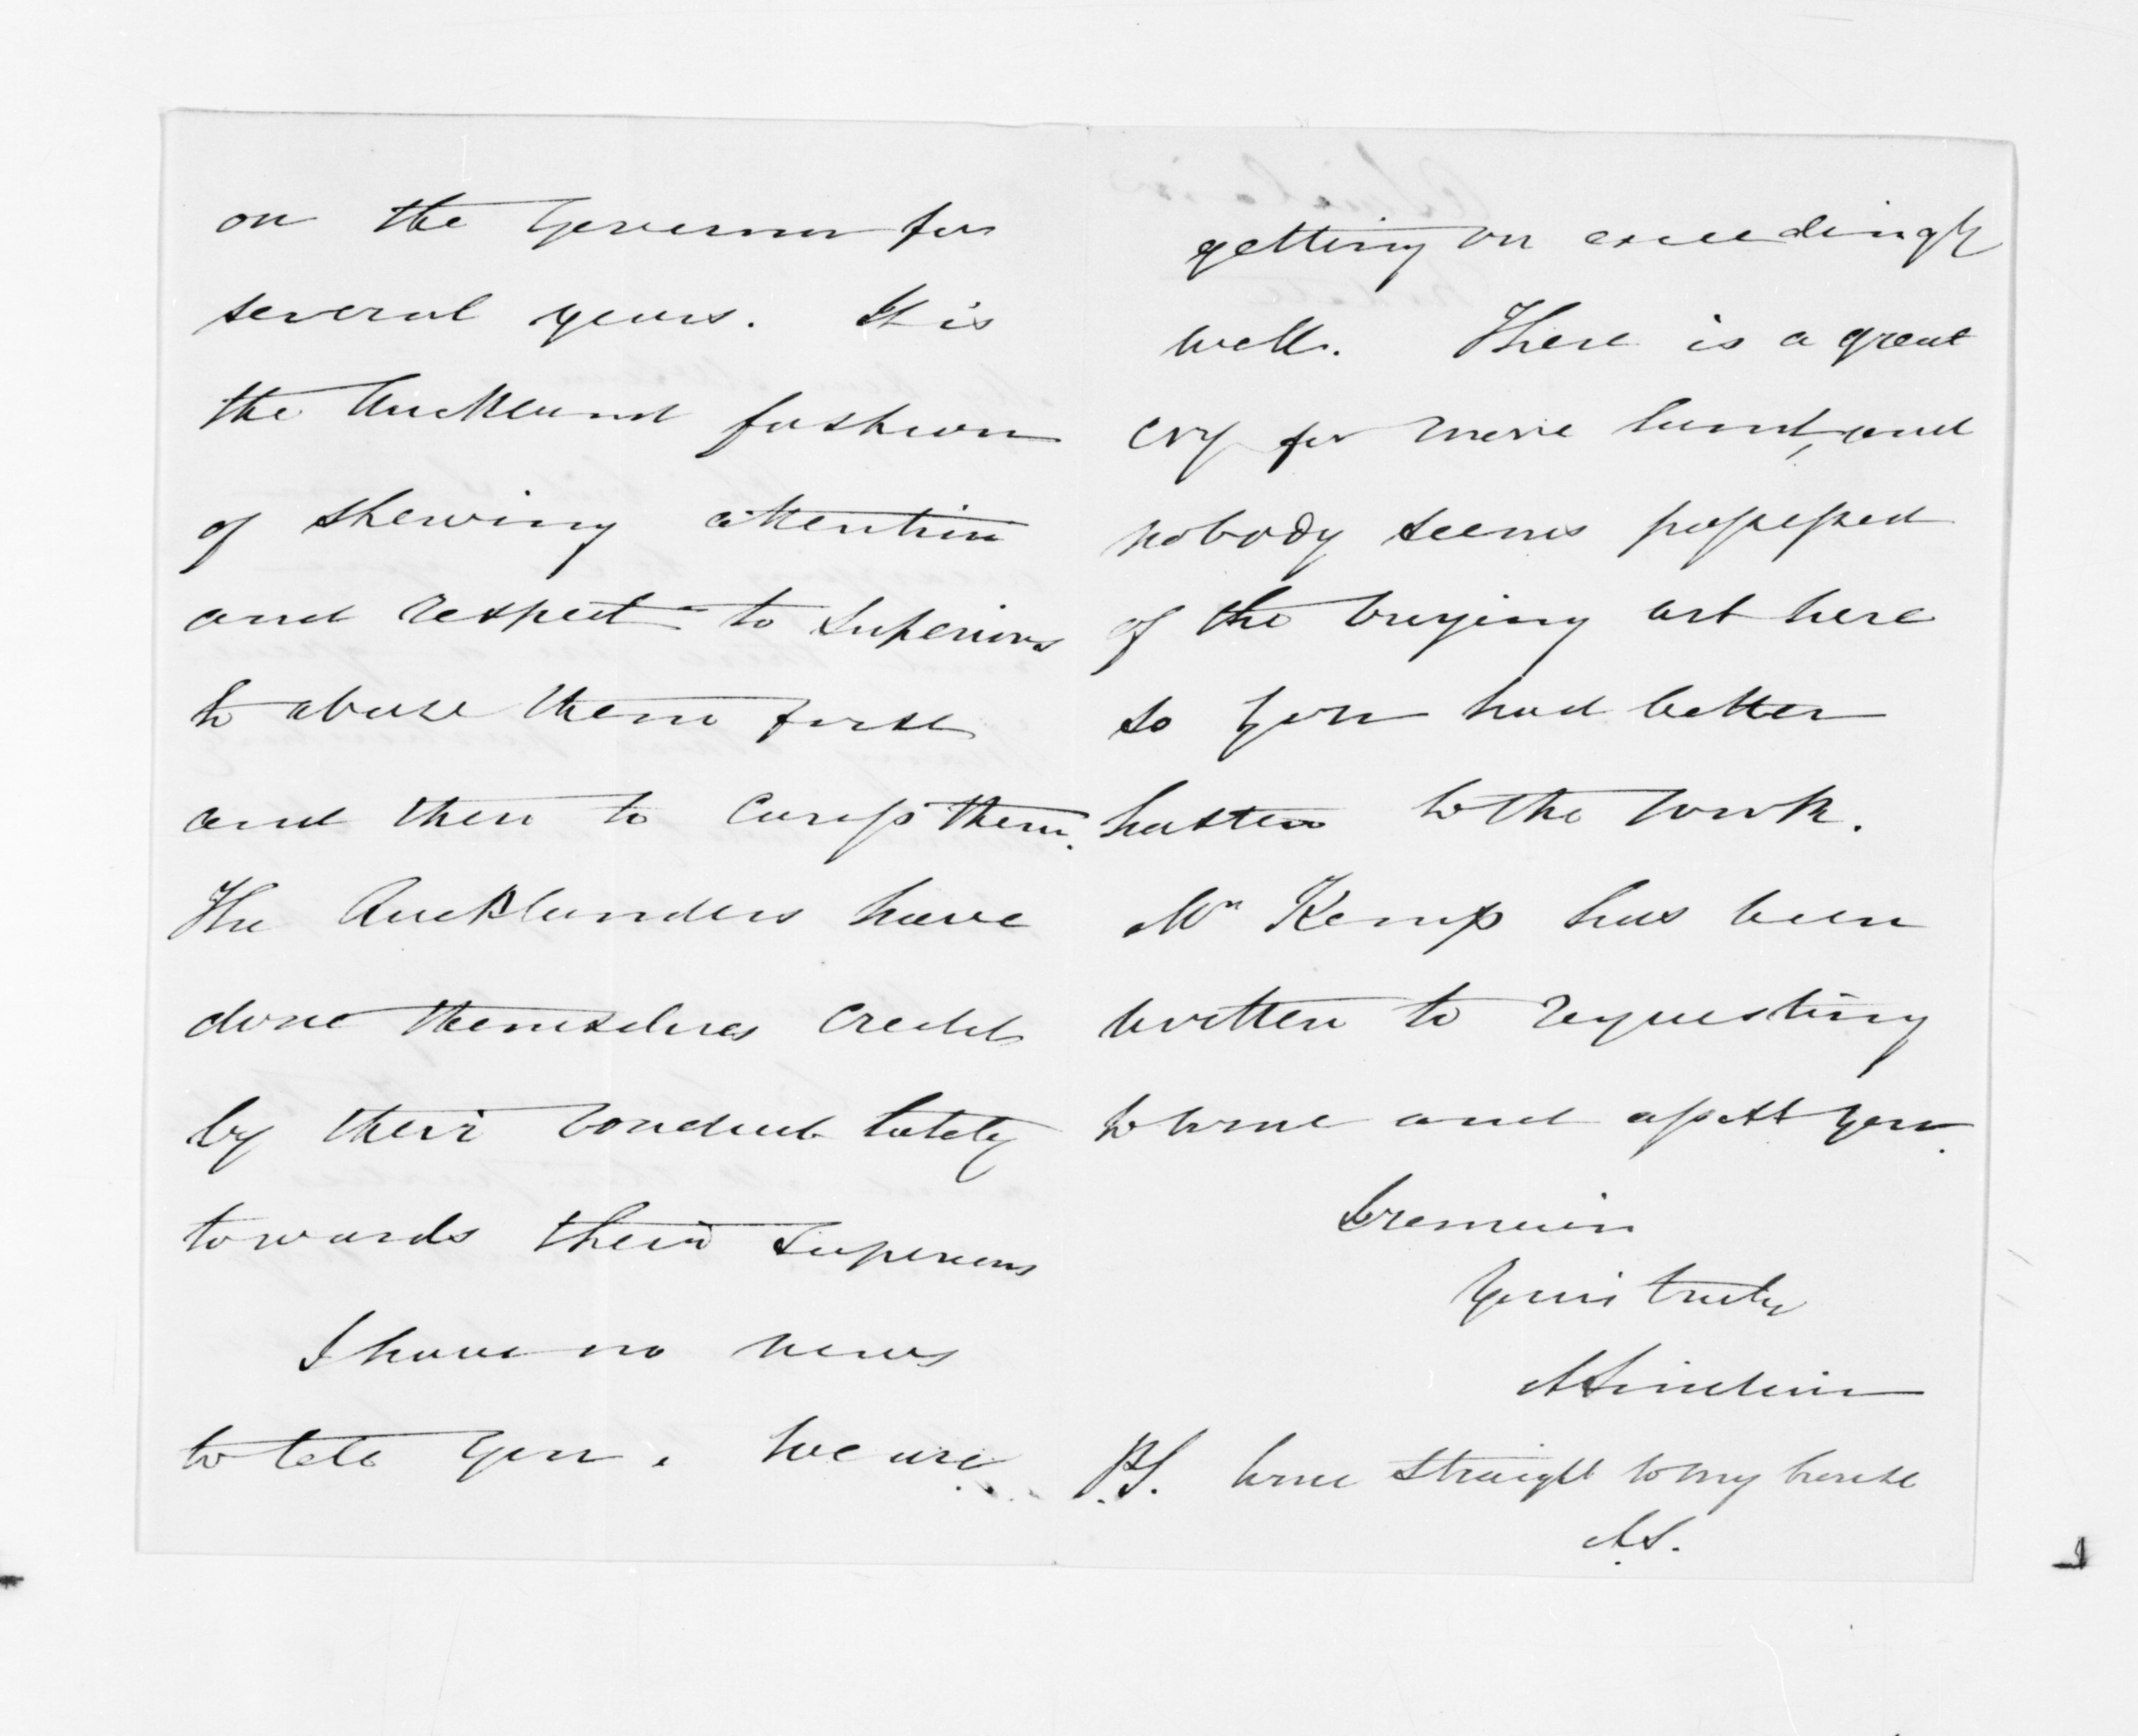 on the Governor for
several years. It is
the Auckland fashion
of shewing attention
and respect to superiors
to abuse them first
and then to caress them.
The Aucklanders have
done themselves credit
by their conduct lately
towards their superiors
I have no news
to tell you. We are
getting on exceedingly
well. There is a great
cry for more land, and
nobody seems possessed
of the buying art here
so you had better
hasten to the work.
Mr Kemp has been
written to requesting
to come and assist you.
I remain
Yours truly
A Sinclair
P.S. Come straight to my house
A.S.